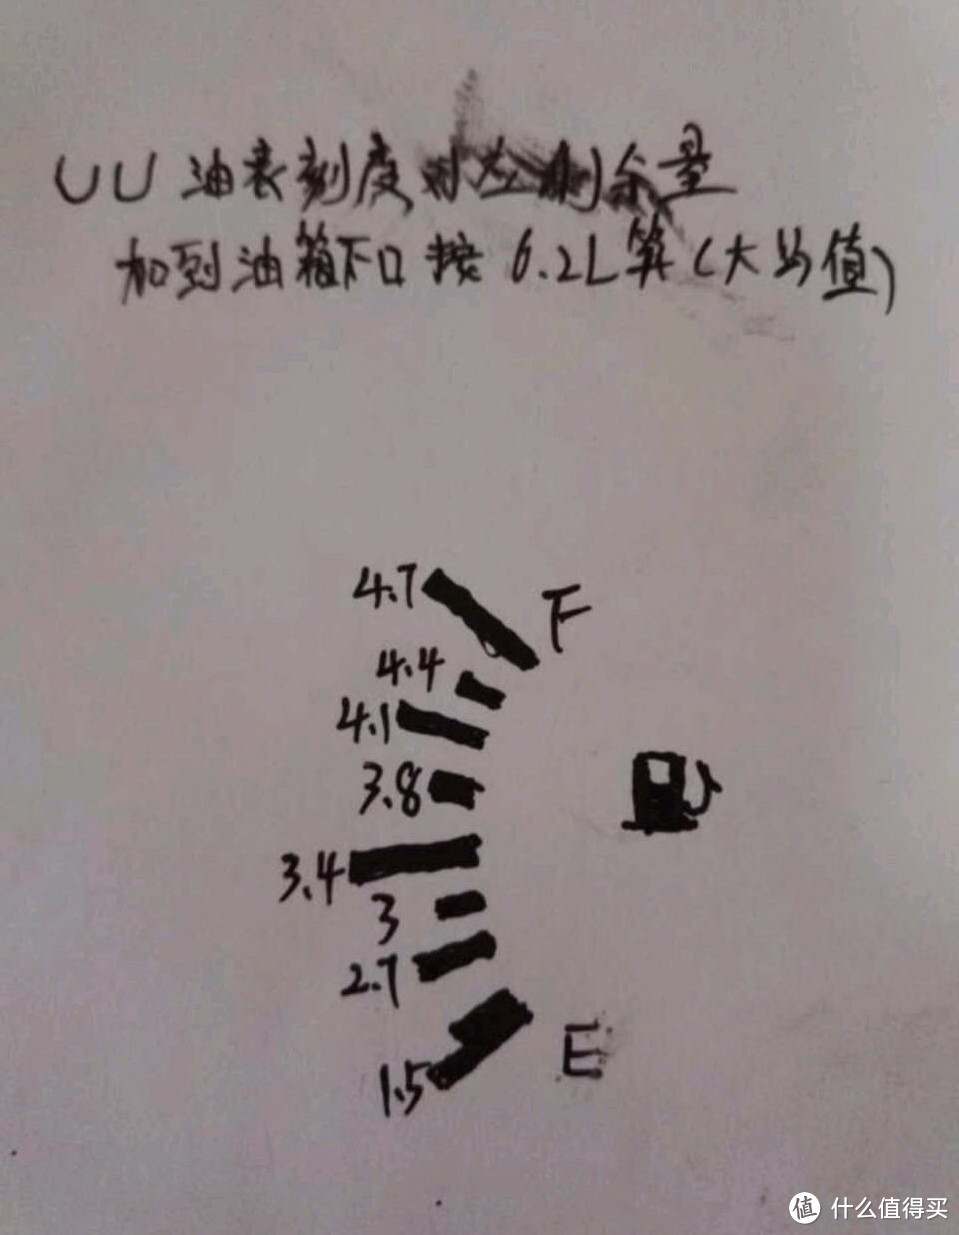 UU油表刻度对应剩余量
加到油箱下口按6.2L算(大约值)
4.7
F
4.4
4.1
3.8
3.4
3
2.7
1.5
E
值 什么值得买